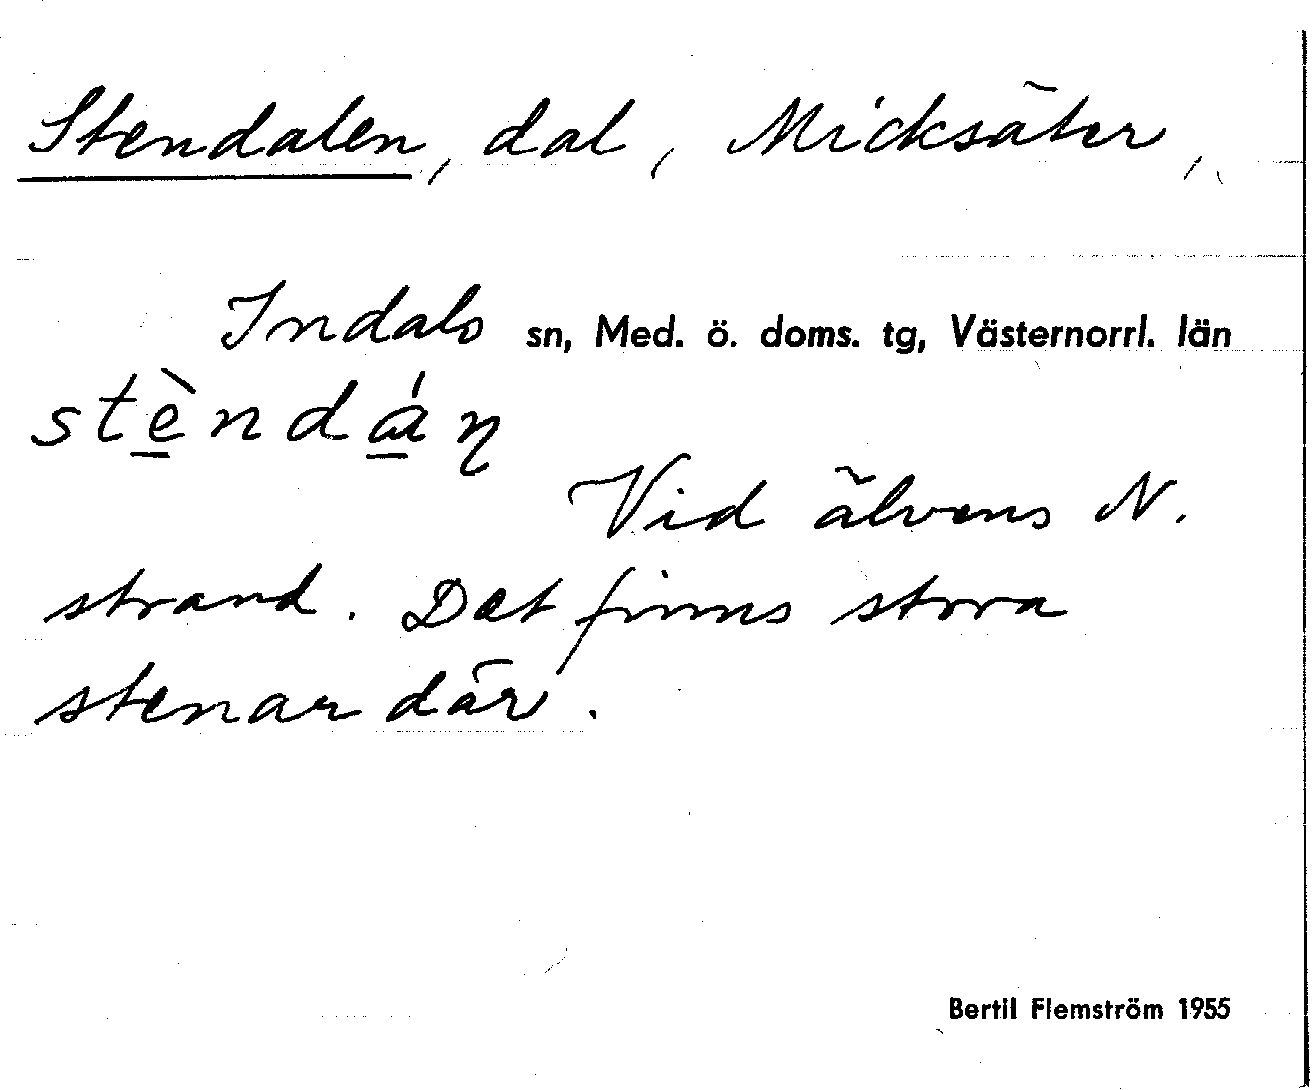 Stendalen, dal, Micksäter,
Indals sn, Med. ö. doms. tg, Västernorrl. län
stèndáɳ
Vid älvens N.
strand. Det finns stora
stenar där.
Bertil Flemström 1955